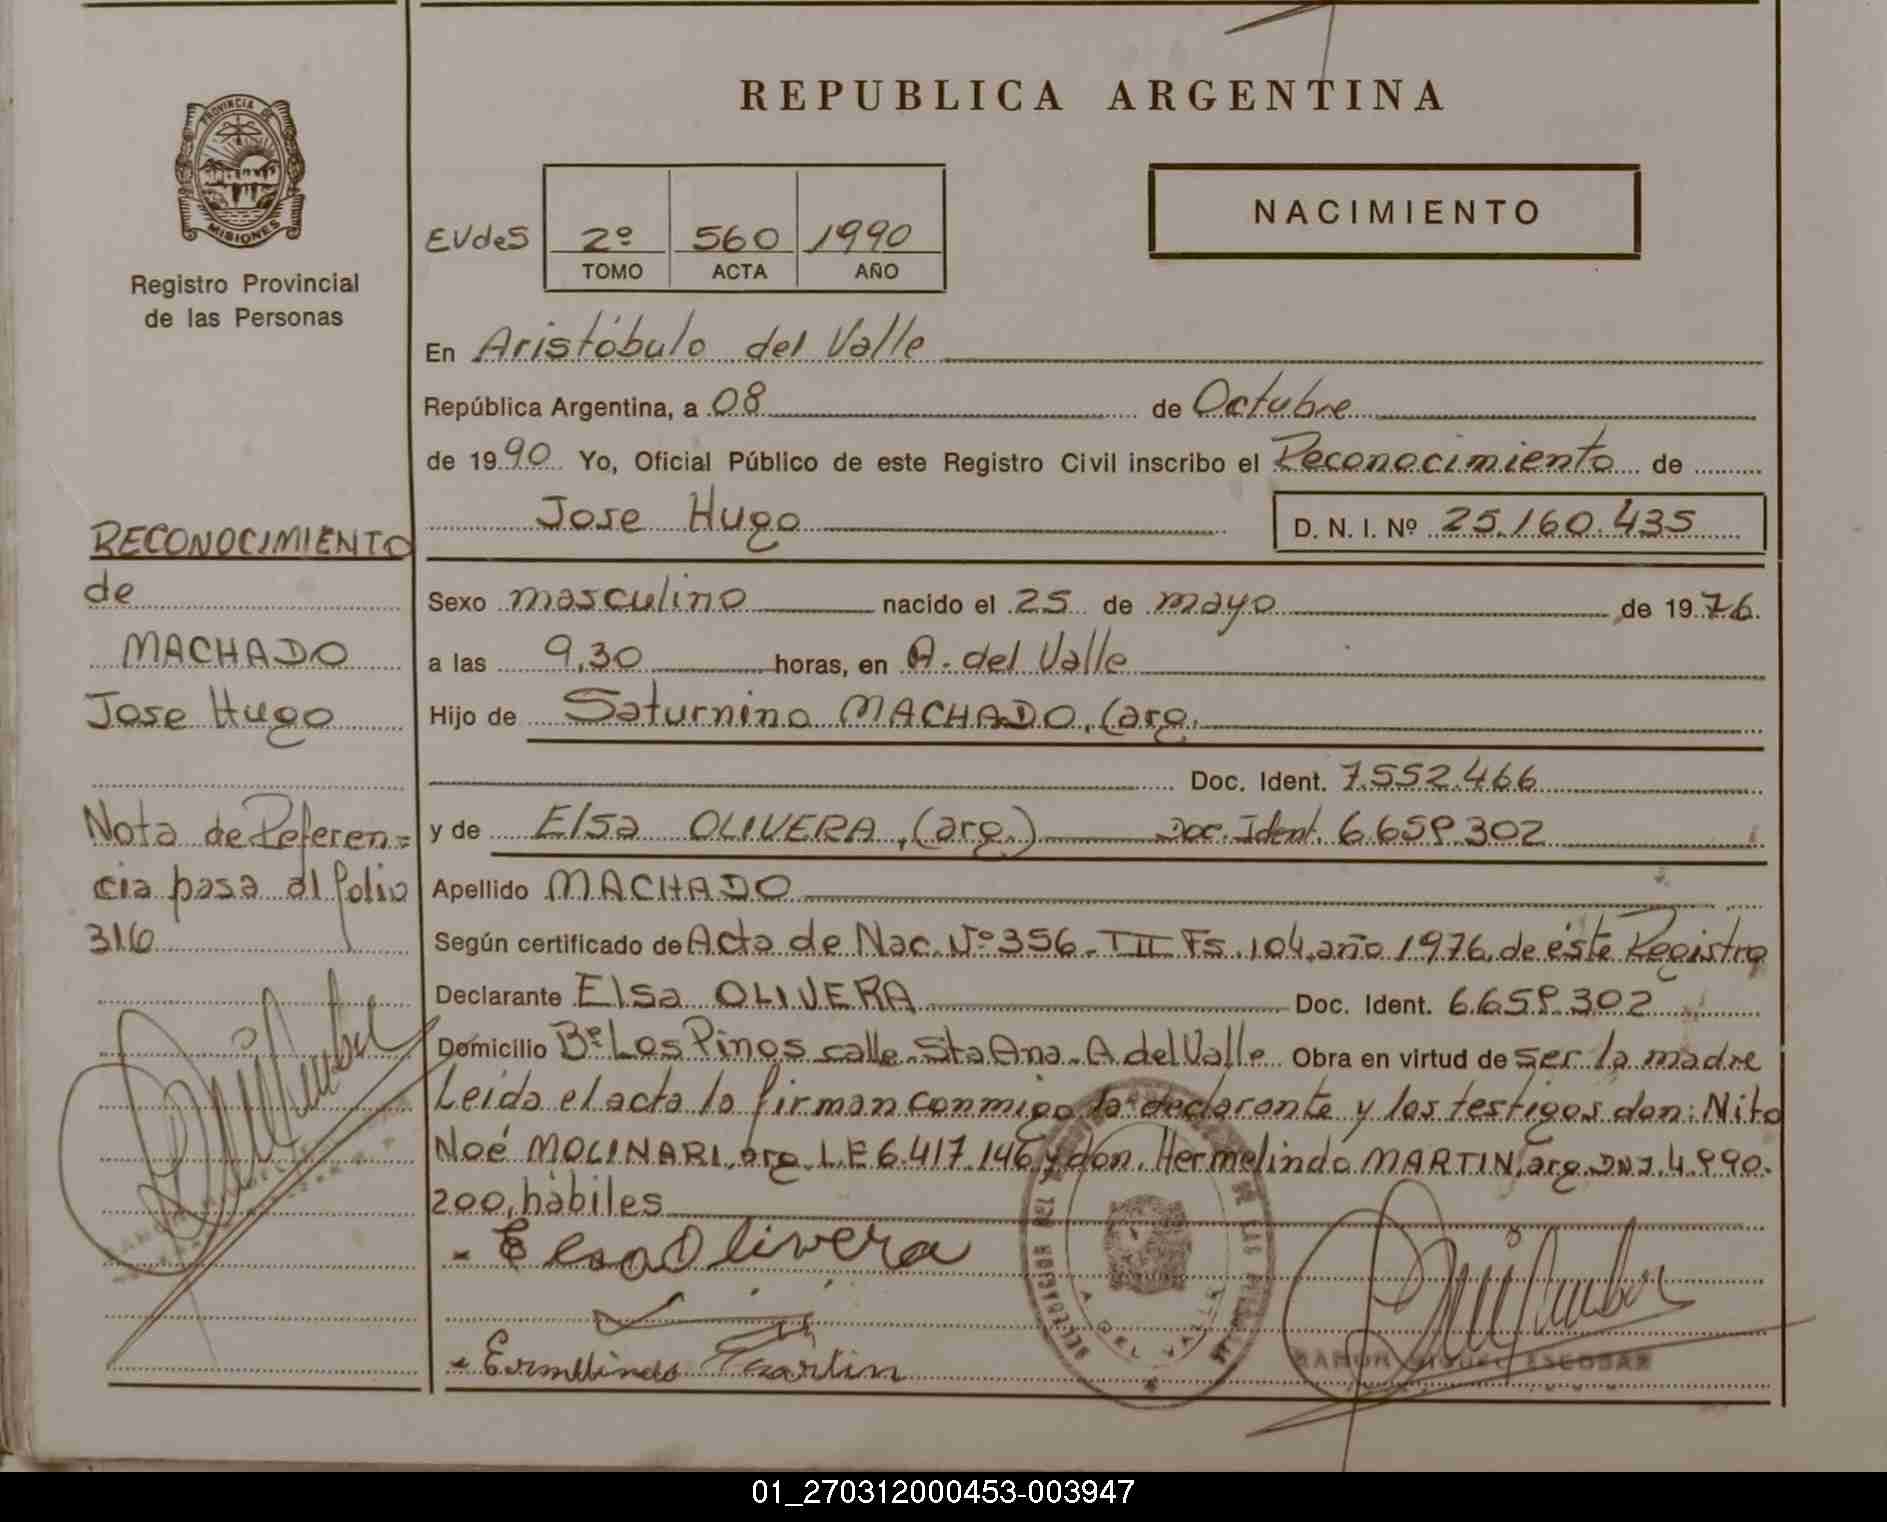 REPUBLICA ARGENTINA
PROVINCIA DE
MISIONES
Registro Provincial
de las Personas
EVdeS
2º 560 1990
TOMO ACTA AÑO
NACIMIENTO
En Aristóbulo del Valle
República Argentina, a 08 de Octubre
de 1990 Yo, Oficial Público de este Registro Civil inscribo el Reconocimiento de
Jose Hugo D. N. I. Nº 25.160.435
Sexo masculino nacido el 25 de mayo de 1976
a las 9,30 horas, en A. del Valle
Hijo de Saturnino MACHADO, (arg.
Doc. Ident. 7.552.466
y de Elsa OLIVERA, (arg.) Doc. Ident. 6.659.302
Apellido MACHADO
Según certificado de Acta de Nac. Nº 356 - T II Fs. 104, año 1976, de éste Registro
Declarante Elsa OLIVERA Doc. Ident. 6.659.302
Domicilio Bº Los Pinos calle Sta Ana - A del Valle Obra en virtud de ser la madre
Leída el acta la firman conmigo la declarante y los testigos don: Nito
Noé MOLINARI, arg. L.E 6.417.146 y don. Hermelindo MARTIN, arg. DNI. 4.990.
200, hábiles
Elsa Olivera
Ermelindo Martin
RAMON MIGUEL ESCOBAR
RECONOCIMIENTO
de
MACHADO
Jose Hugo
Nota de Referen=
cia pasa al folio
316
01_270312000453-003947